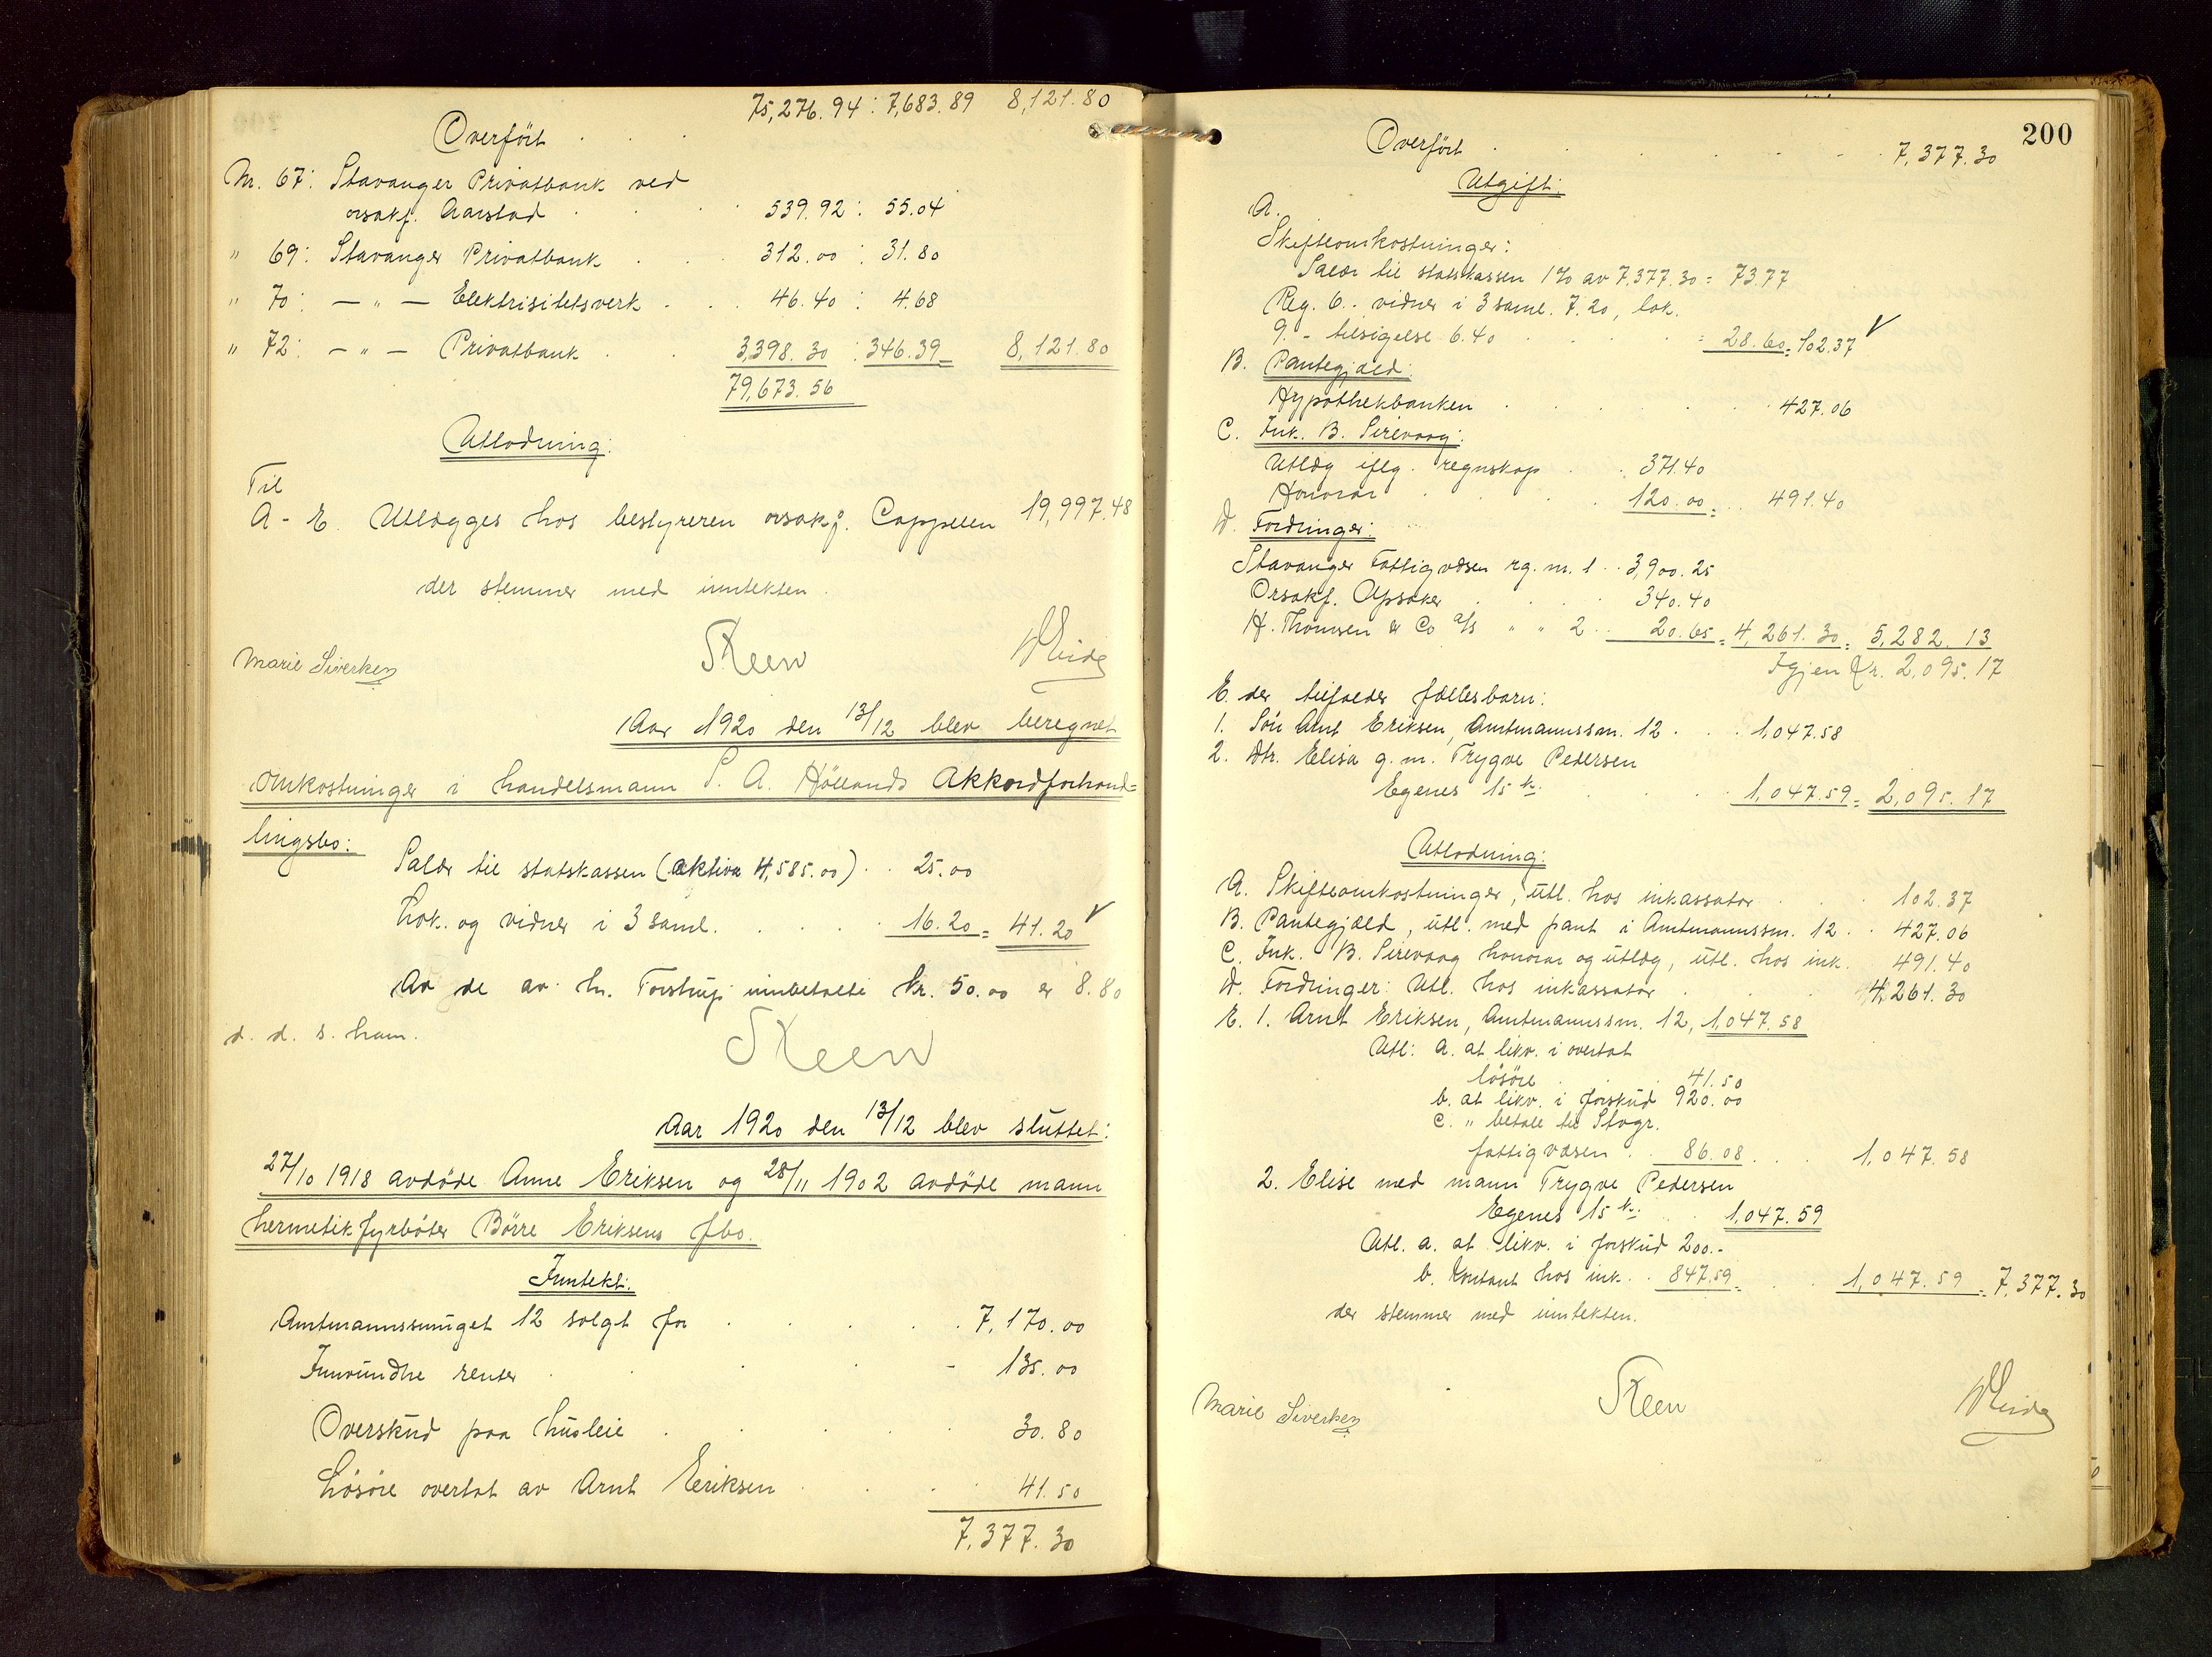 75,276.94 : 7,683.89 8,121.80
Overført . . .
Nr. 67: Stavanger Privatbank ved
orsakf. Aarstad . . . 539.92 : 55.04
" 69: Stavanger Privatbank . . . 312.00 : 31.80
" 70: — " — Elektrisitetsverk . . . 46.40 : 4.68
" 72: — " — Privatbank . . . 3,398.30 : 346.39 = 8,121.80
79,673.56
Utlodning:
Til
A - E. Utlægges hos bestyreren orsakf. Cappelen 19,997.48
der stemmer med inntekten.
Marie Siverksen Steen
Aar 1920 den 13/12 blev beregnet
omkostninger i handelsmann S. A. Høllands Akkordforhand=
lingsbo:
Salær til statskassen (aktiva 4,585.00) . . 25.00
Lok. og vidner i 3 saml. . . . . 16.20 = 41.20 √
Av de av hr. Torstrup innbetalte kr. 50.00 er 8.80
d. d. s. ham. Steen
Aar 1920 den 13/12 blev sluttet:
27/10 1918 avdøde Anne Eriksen og 28/11 1902 avdøde mann
hermetikfyrbøter Børre Eriksens fbo.
Inntekt:
Amtmannssmuget 12 solgt for . . . . . 7,170.00
Innvundne renter . . . - 135.00
Overskud paa husleie . . . . . 30.80
Løsøre overtat av Arnt Eriksen . . . 41.50
7,377.30
200
Overført . . . . . . 7,377.30
Utgift:
A.
Skifteomkostninger:
Salær til statskassen 1% av 7,377.30 = 73.77
Reg. 6. vidner i 3 saml. 7.20, lok.
9. - tilsigelse 6.40 . . . = 28.60 = 102.37 √
B. Pantegjæld:
Hypothekbanken . . . . . 427.06
C. Ink. B. Sirevaag:
Utlæg iflg. regnskap . . 371.40
Honorar . . . . 120.00 = . . 491.40
D. Fordringer:
Stavanger Fattigvæsen rg. nr. 1 . . 3,900.25
Orsakf. Apsaker . . . 340.40
H. Thomsen & Co a/s " " 2 . . 20.65 = 4,261.30 = 5,282.13
Igjen Kr. 2,095.17
E. der tilfalder fællesbarn:
1. Søn Arnt Eriksen, Amtmannssm. 12 . . . 1,047.58
2. Dtr. Elisa g. m. Trygve Pedersen
Egenes 15 . . . . 1,047.59 = 2,095.17
Utlodning:
A. Skifteomkostninger, utl. hos inkassator . . . 102.37
B. Pantegjæld, utl. med pant i Amtmannssm. 12 . . 427.06
C. Ink. B. Sirevaag honorar og utlæg, utl. hos ink. 491.40
D. Fordringer: Utl. hos inkassator . . . 4,261.30
E. 1. Arnt Eriksen, Amtmannssm. 12, 1,047.58
Utl: a. at likv. i overtat
løsøre . . 41.50
b. at likv. i forskud 920.00
c. " betale til Stvgr.
fattigvæsen . . 86.08 . . . 1,047.58
2. Elise med mann Trygve Pedersen
Egenes 15 . . 1,047.59
Utl. a. at likv. i forskud 200.-
b. Kontant hos ink. . 847.59 = . . 1,047.59 = 7,377.30
der stemmer med inntekten.
Marie Siverksen Steen